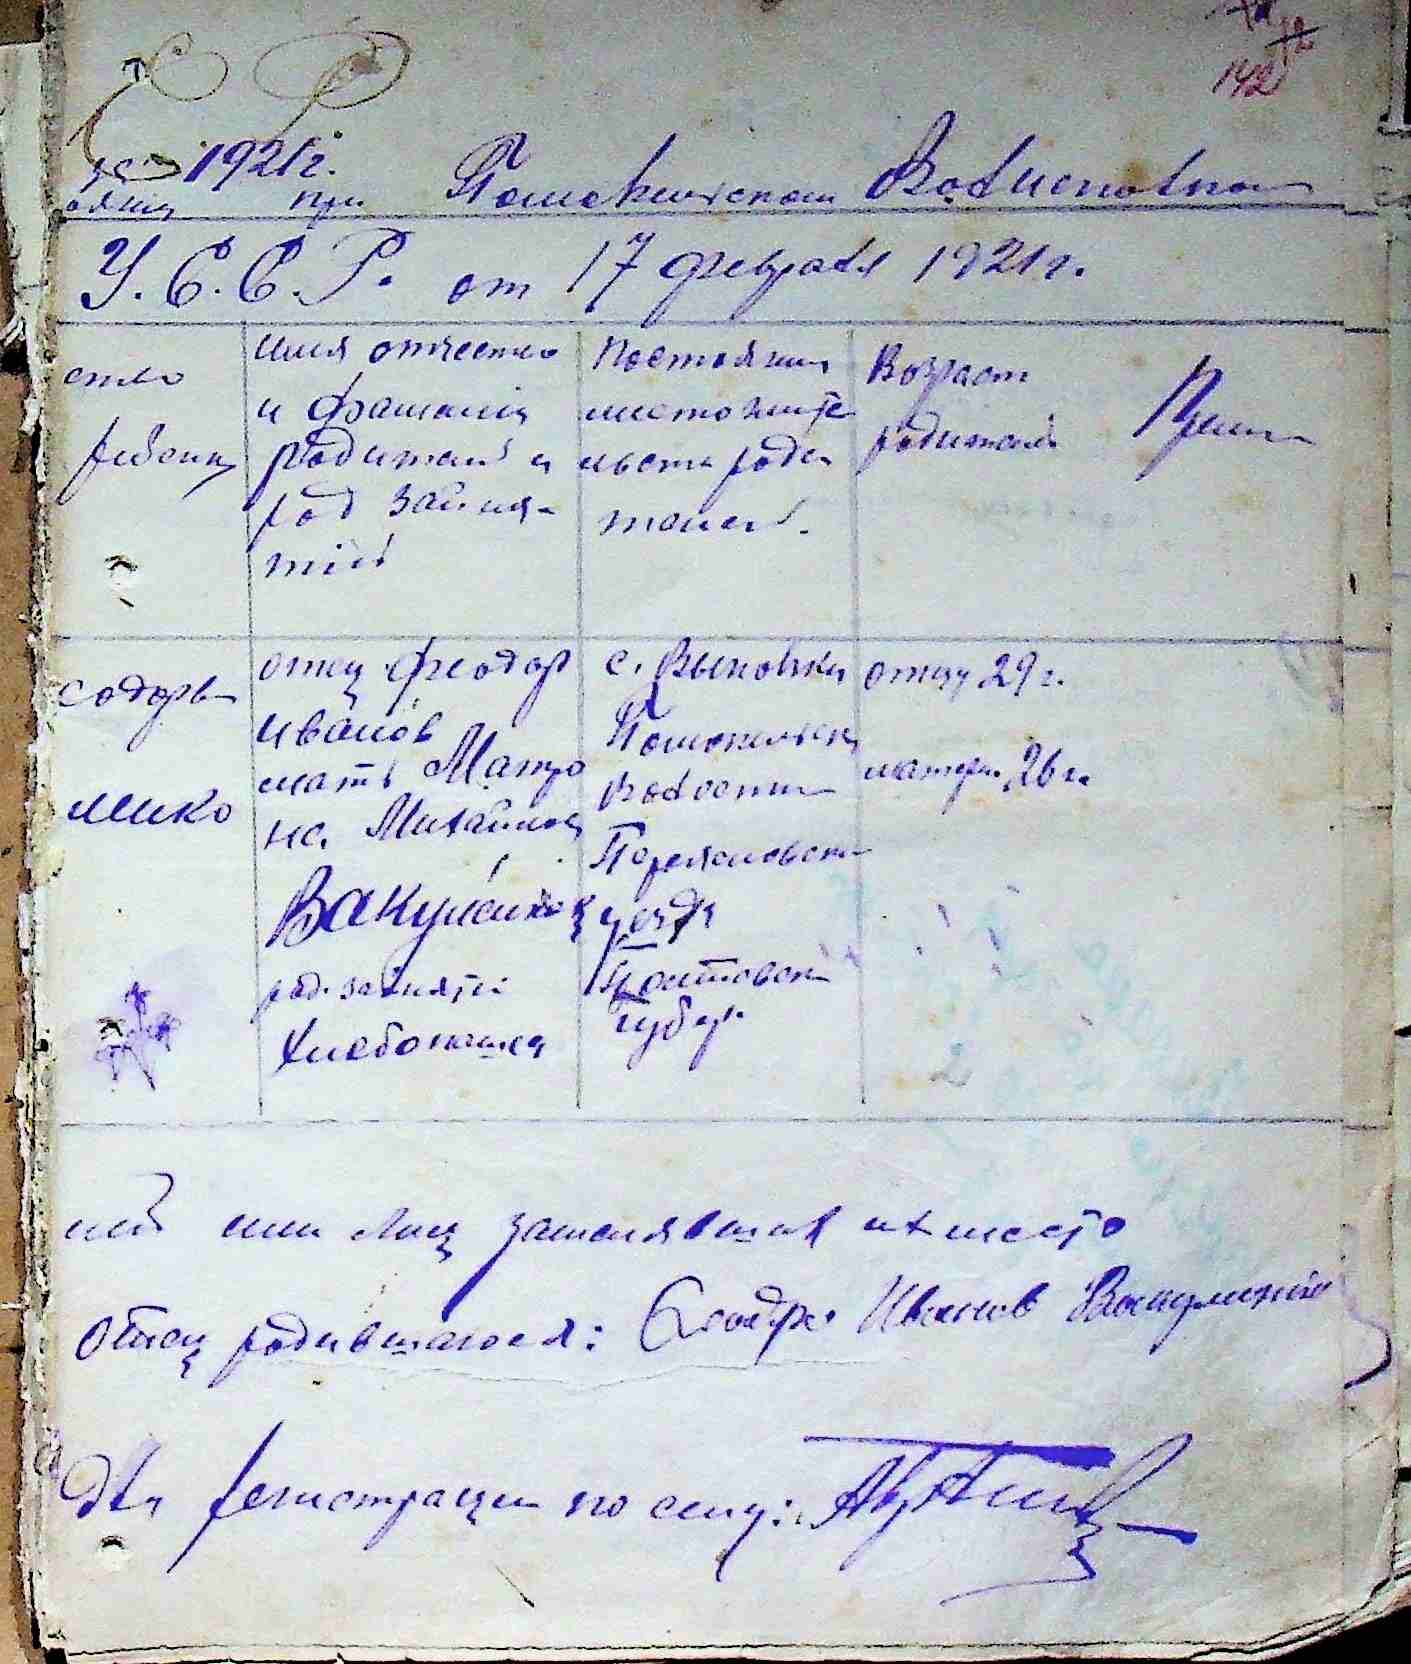 142
1921 г.
при Помокельском Волисполком
У.С.С.Р. от 17 февраля 1921 г.
ство
ребенка
имя отчество
и фамилия
родителей и
род заня-
тий
Постоянн
место жите
льства роди
телей.
Возраст
родителей
Прим
содоръ
мико
отец Феодор
Иванов
мать Матро
на Михайлов
Вакуленко
род занятій
хлебопашец
с. Выповзки
Помокельск
Волости
Переяславск
уезда
Полтавск
губер
отцу 29 г.
матери 26 г.
или лиц заменявших их место
Отец родившагося: Феодор Иванов Вакуленко
для регистрации по селу: